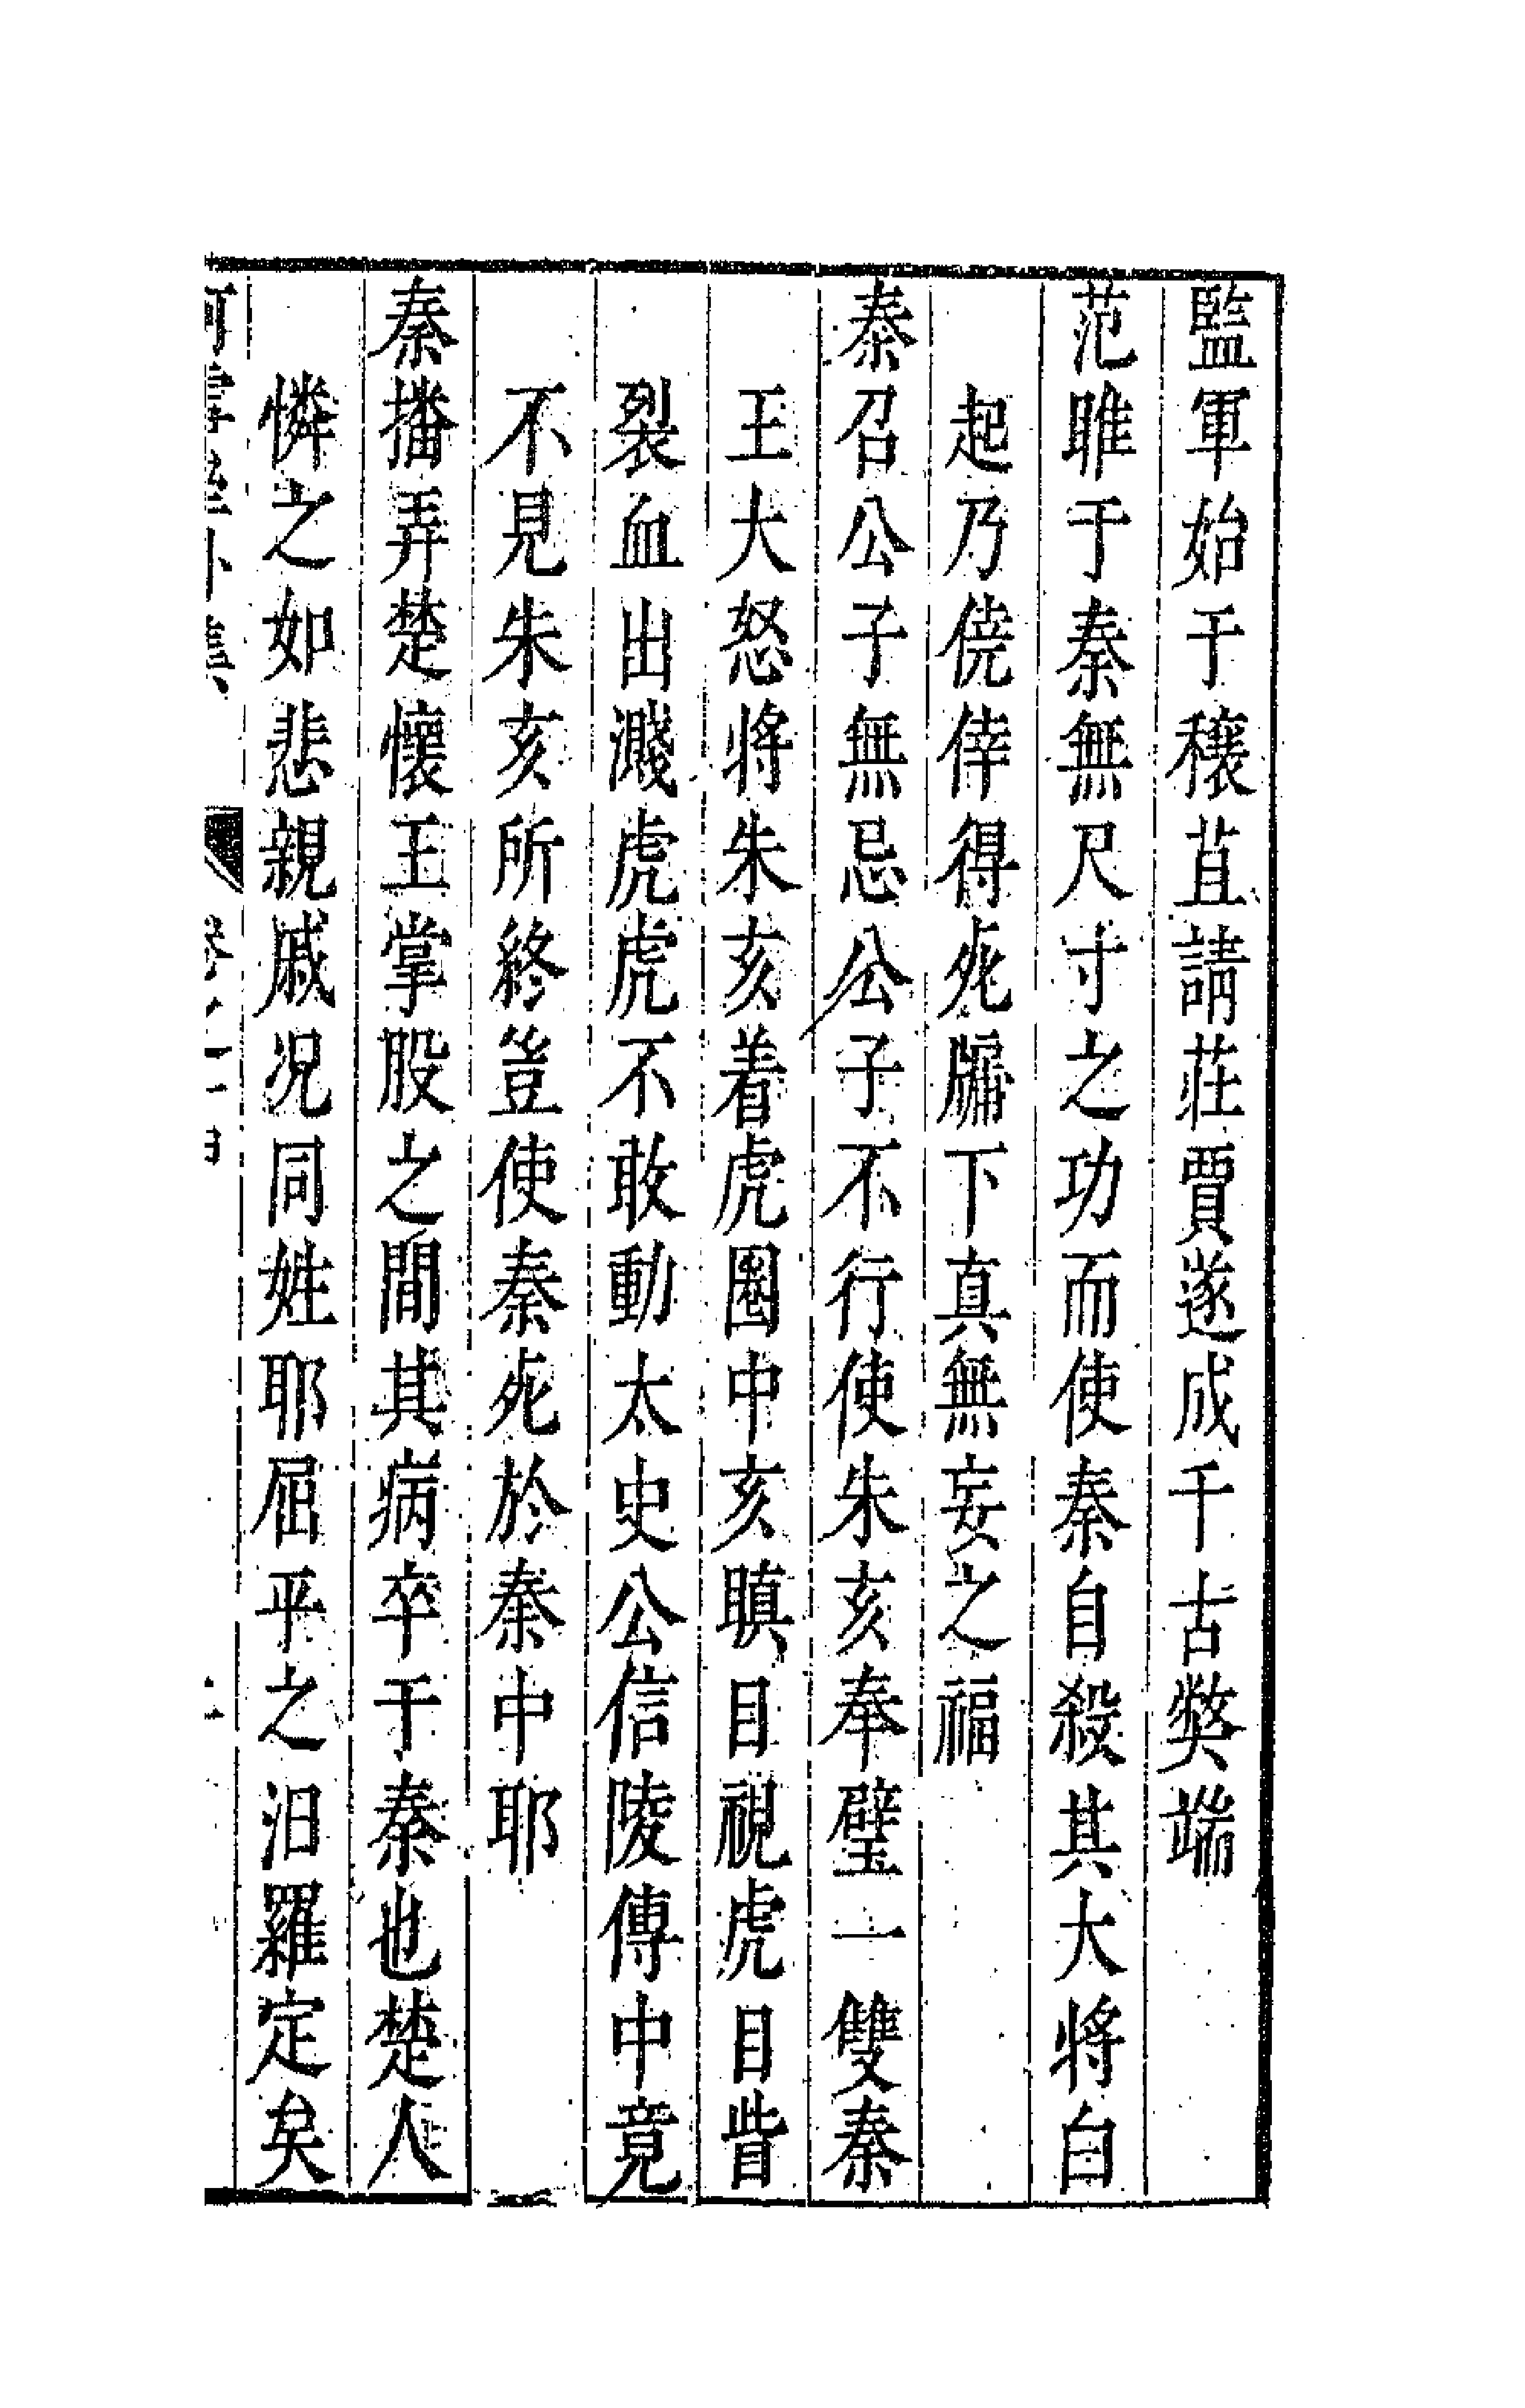 監軍始于穰苴請莊賈遂成千古獘端
范雎于秦無尺寸之功而使秦自殺其大將白
起乃僥倖得死牖下真無妄之福
秦召公子無忌公子不行使朱亥奉璧一雙秦
王大怒將朱亥着虎圈中亥瞋目視虎目眥
裂血出濺虎虎不敢動太史公信陵傳中竟
不見朱亥所終豈使秦死於秦中耶
秦播弄楚懷王掌股之間其病卒于秦也楚人
憐之如悲親戚况同姓耶屈平之汨羅定矣